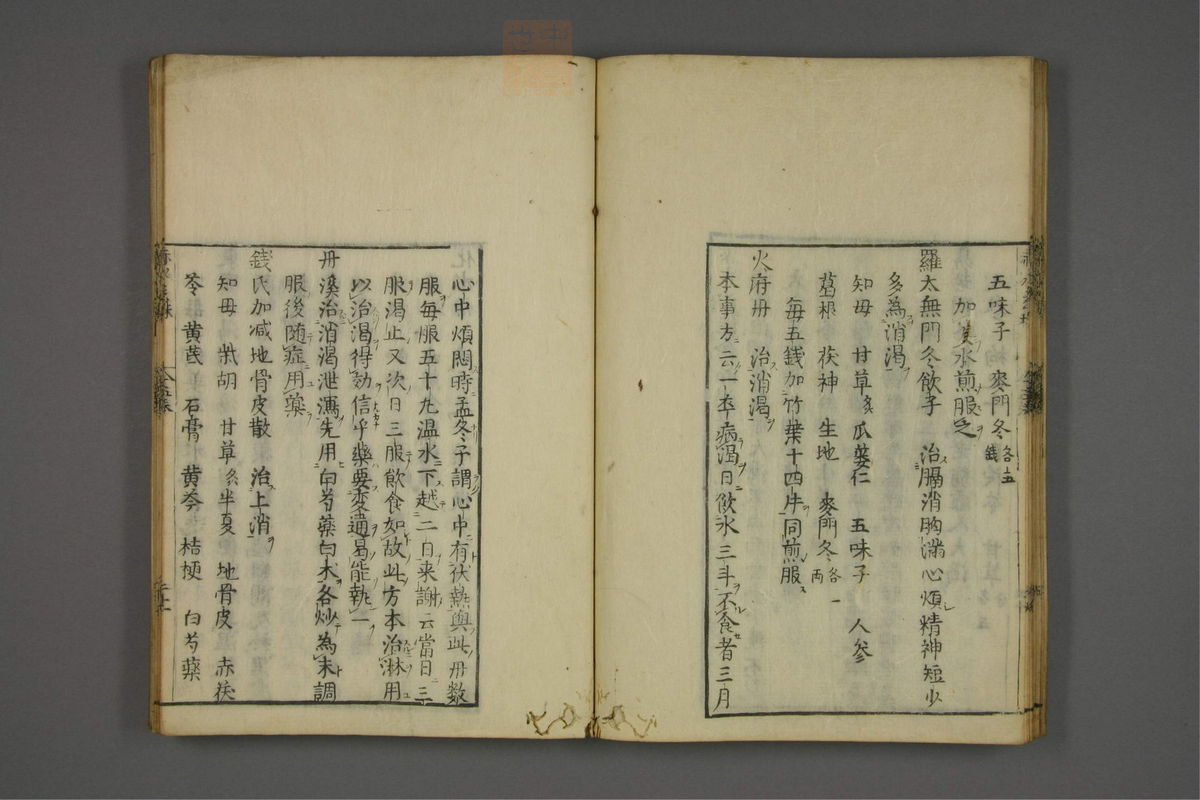 五味子 麥門冬 各五錢
加姜水煎服之
羅太無門冬飲子 治膈消胸滿心煩精神短少
多為消渴
知毋 甘草炙 瓜蔞仁 五味子 人參
葛根 茯神 生地 麥門冬 各一兩
每五錢加竹葉十四片同煎服
火府丹 治消渴
本事方云一卒病渴日飲水三斗不食者三月
心中煩悶時孟冬予謂心中有伏熱與此丹數
服每服五十九温水下越二日来謝云當日三
服渴止又次日三服飲食如故此方本治淋用
以治渴得効信乎藥要変通易能執一
丹溪治消渴泄瀉先用白芍藥白术各炒為末調
服後随症用藥
錢氏加减地骨皮散 治上消
知毋 柴胡 甘草炙 半夏 地骨皮 赤茯
苓 黄芪 石膏 黄芩 桔梗 白芍藥